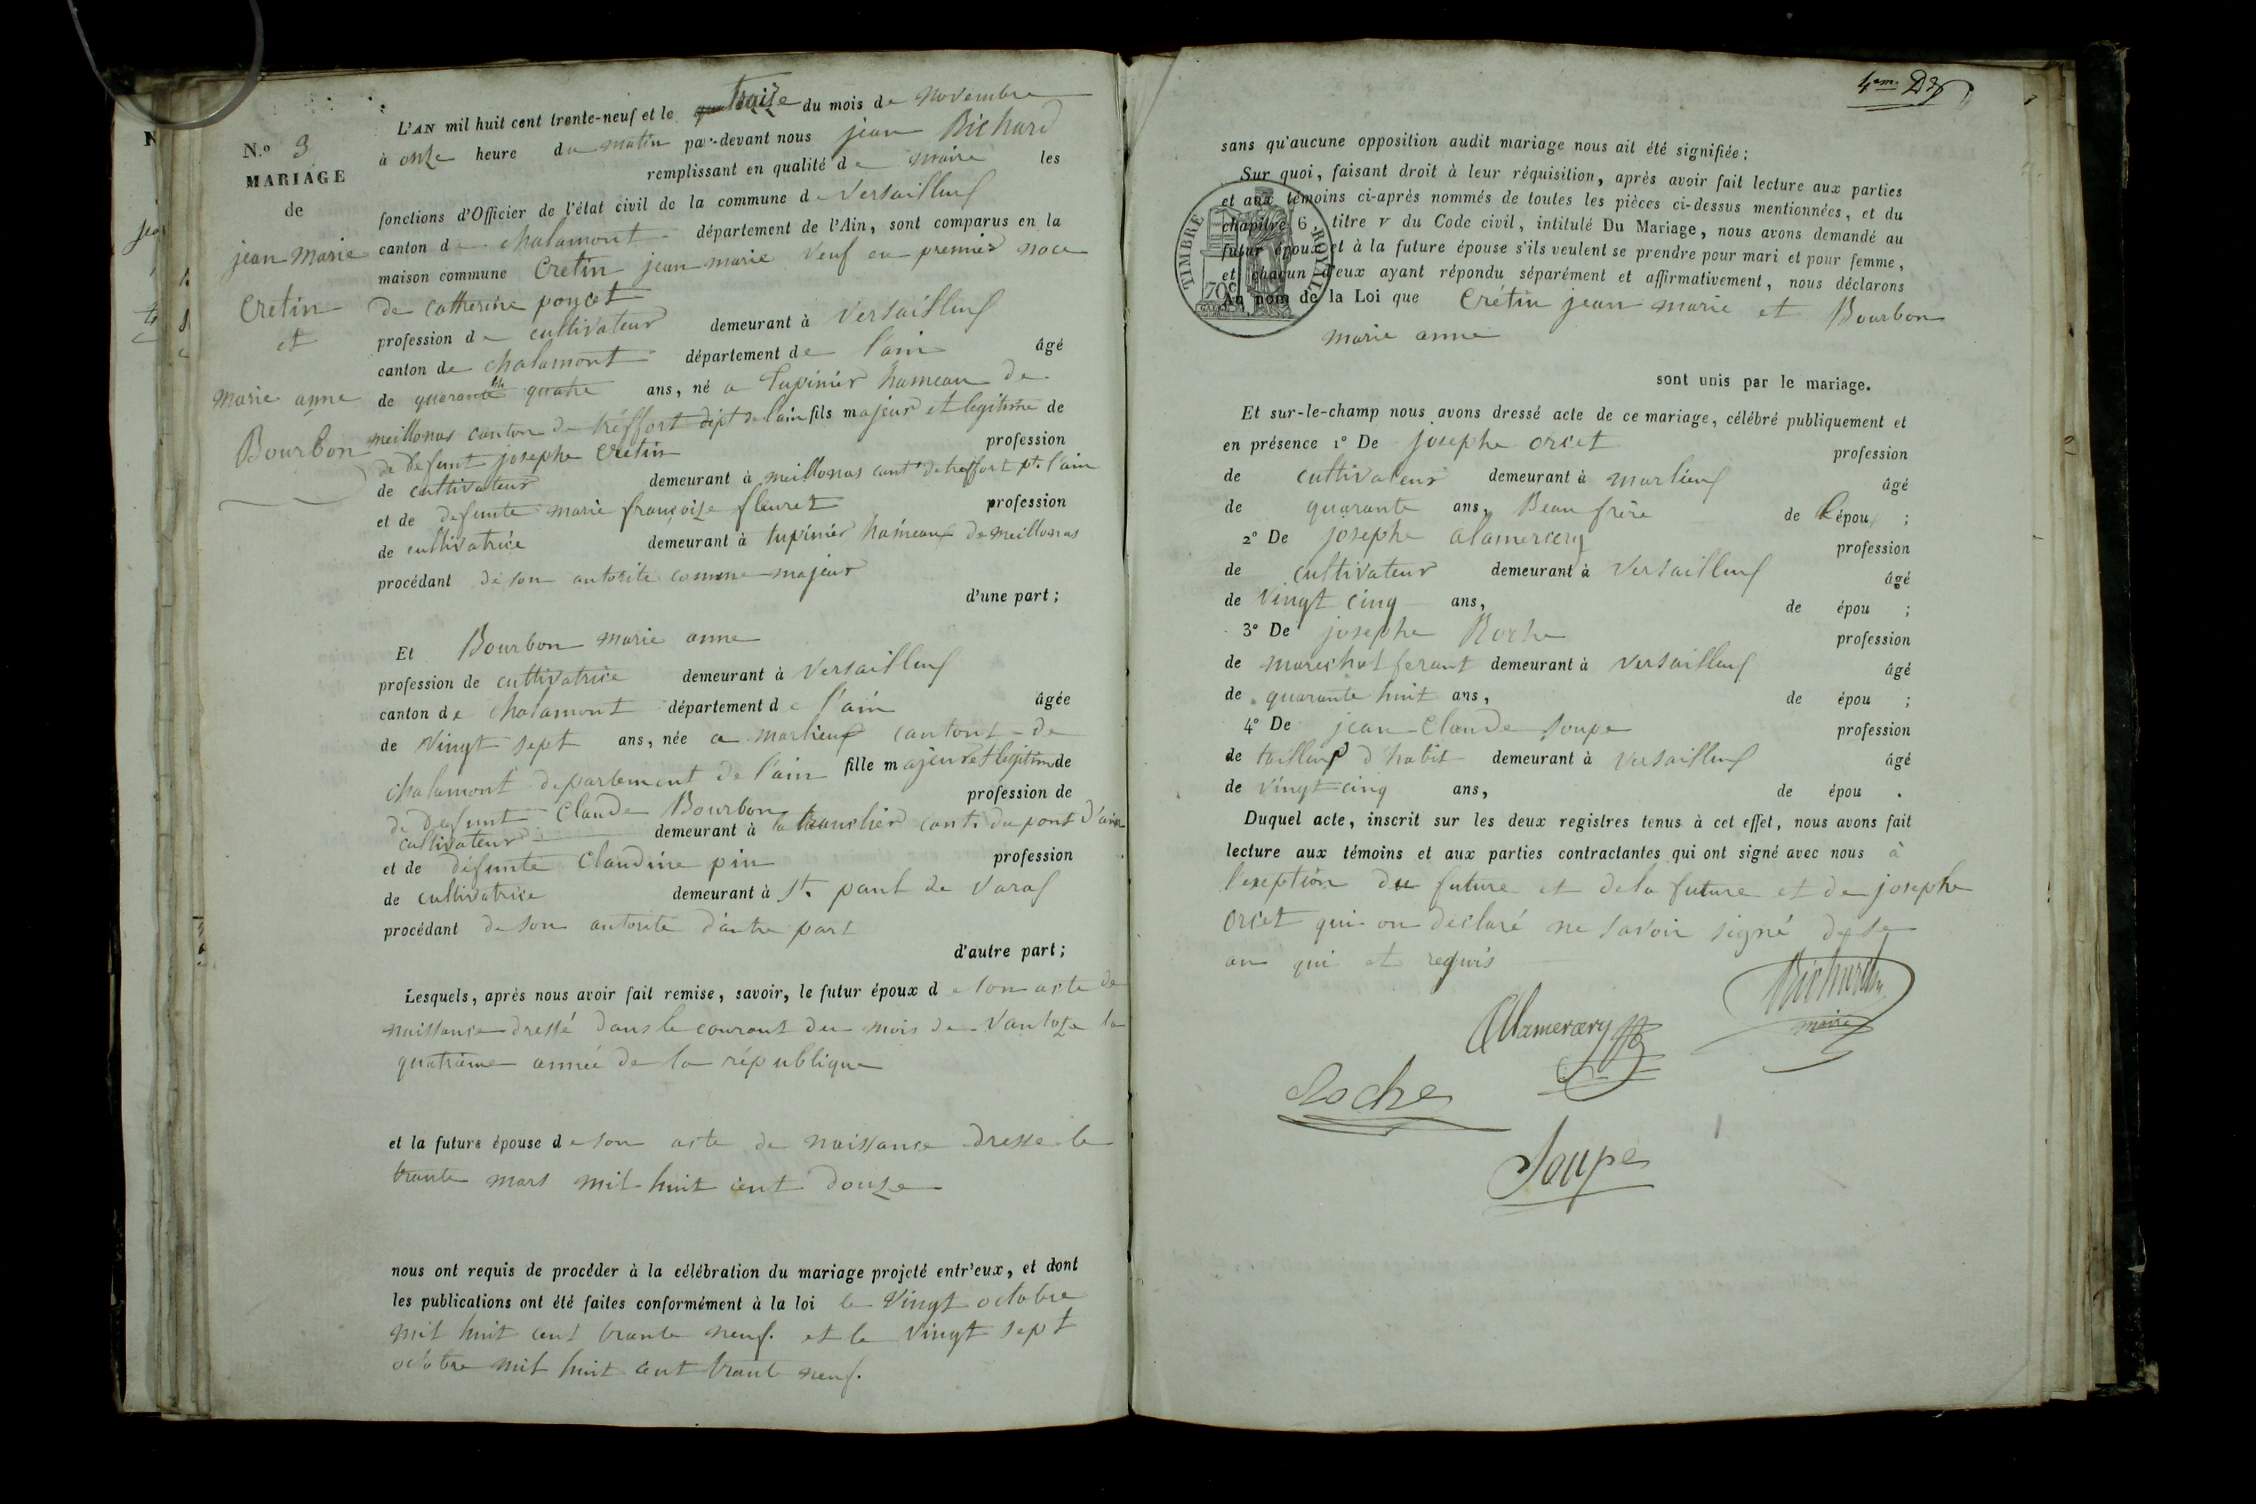 N.o 3
MARIAGE
de
jean Marie
Cretin
et
marie anne
Bourbon
L'AN mil huit cent trente-neuf et le traize du mois de novembre
à onze heure du matin par-devant nous jean Bichard
remplissant en qualité de maire les
fonctions d'Officier de l'état civil de la commune de Versaillieuf
canton de chalamont département de l'Ain, sont comparus en la
maison commune Cretin jean marie veuf en premier noce
de catherine poncet
profession de cultivateur demeurant à Versaillieuf
canton de chalamont département de l'ain âgé
de quarante quatre ans, né a tupinier hameau de
meillonas canton de tréffort dept de l'ain fils majeur et legitime de
de defunt josephe Cretin profession
de cultivateur demeurant à meillonas cant. de treffort pt. l'ain
et de defunte marie françoize fleuret profession
de cultivatrice demeurant à tupinier hameau de meillonas
procédant de son autorite comme majeur
d'une part;
Et Bourbon marie anne
profession de cultivatrice demeurant à Versaillieuf
canton de chalamont département de l'ain âgée
de vingt sept ans, née a marlieuf cantont de
chalamont departement de l'ain fille majeure et legitim de
de defunt Claude Bourbon profession de
cultivateur demeurant à la tranclier cant. du pont d'ain
et de défunte Claudine pin profession
de cultivatrice demeurant à St. paul de Varaf
procédant de son autorite d'autre part
d'autre part;
Lesquels, après nous avoir fait remise, savoir, le futur époux de son acte de
naissance dressé dans le courant du mois de Vantoze la
quatrième année de la république
et la future épouse de son acte de naissance dresse le
trante mars mil huit cent douze
nous ont requis de procéder à la célébration du mariage projeté entr'eux, et dont
les publications ont été faites conformément à la loi le Vingt octobre
mil huit cent trante neuf. et le vingt sept
octobre mil huit cent trante neuf.
4em. Dz
sans qu'aucune opposition audit mariage nous ait été signifiée;
Sur quoi, faisant droit à leur réquisition, après avoir fait lecture aux parties
et aux témoins ci-après nommés de toutes les pièces ci-dessus mentionnées, et du
chapitre 6, titre V du Code civil, intitulé Du Mariage, nous avons demandé au
futur époux et à la future épouse s'ils veulent se prendre pour mari et pour femme,
et chacun d'eux ayant répondu séparément et affirmativement, nous déclarons
Au nom de la Loi que Crétin jean marie et Bourbon
marie anne
TIMBRE ROYAL
70c.
sont unis par le mariage.
Et sur-le-champ nous avons dressé acte de ce mariage, célébré publiquement et
en présence 1° De josephe orset profession
de cultivateur demeurant à marlieuf âgé
de quarante ans, Beau frère de l'épou ;
2° De josephe alamercery profession
de cultivateur demeurant à Versaillieuf âgé
de vingt cinq ans, de épou ;
3° De josephe Roche profession
de marechal ferant demeurant à Versaillieuf âgé
de quarante huit ans, de épou ;
4° De jean-Claude Soupe profession
de tailleur d'habit demeurant à Versaillieuf âgé
de vingt-cinq ans, de épou .
Duquel acte, inscrit sur les deux registres tenus à cet effet, nous avons fait
lecture aux témoins et aux parties contractantes qui ont signé avec nous à
l'exeption du future et de la future et de josephe
orset qui on declaré ne savoir signé de se
an qui et requis
Bichard
maire
Alamercery
Roche
Soupe